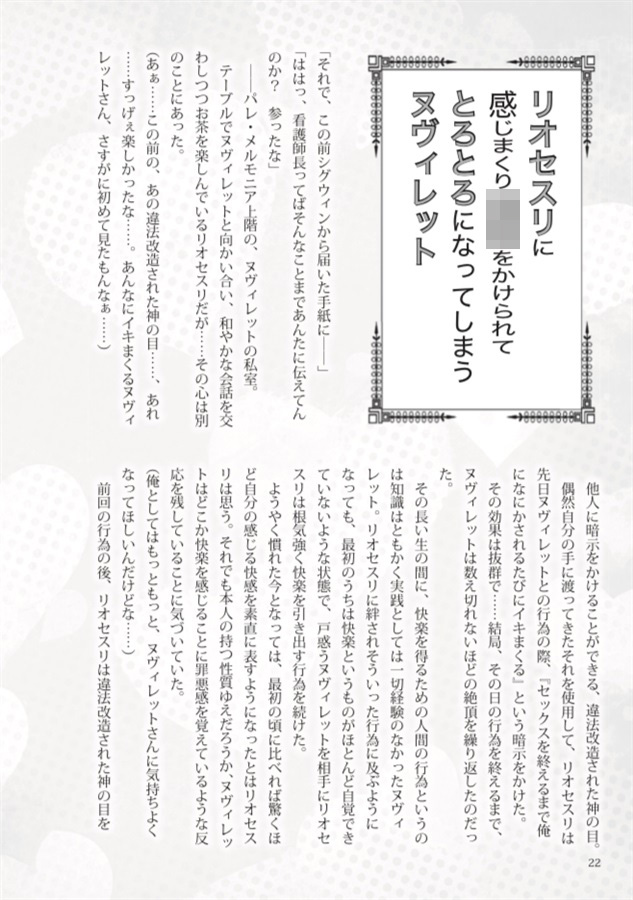 リオセスリに
感じまくり
をかけられて
とろとろになってしまう
ヌヴィレット
「それで、この前シグウィンから届いた手紙に――」
「ははっ、看護師長ってばそんなことまであんたに伝えてん
のか? 参ったな」
――パレ・メルモニア上階の、ヌヴィレットの私室。
テーブルでヌヴィレットと向かい合い、和やかな会話を交
わしつつお茶を楽しんでいるリオセスリだが……その心は別
のことにあった。
(あぁ……この前の、あの違法改造された神の目……、あれ
……すっげぇ楽しかったな……。あんなにイキまくるヌヴィ
レットさん、さすがに初めて見たもんなぁ……)
他人に暗示をかけることができる、違法改造された神の目。
偶然自分の手に渡ってきたそれを使用して、リオセスリは
先日ヌヴィレットとの行為の際、『セックスを終えるまで俺
になにかされるたびにイキまくる』という暗示をかけた。
その効果は抜群で……結局、その日の行為を終えるまで、
ヌヴィレットは数え切れないほどの絶頂を繰り返したのだっ
た。
その長い生の間に、快楽を得るための人間の行為というの
は知識はともかく実践としては一切経験のなかったヌヴィ
レット。リオセスリに絆されそういった行為に及ぶように
なっても、最初のうちは快楽というものがほとんど自覚でき
ていないような状態で、戸惑うヌヴィレットを相手にリオセ
スリは根気強く快楽を引き出す行為を続けた。
ようやく慣れた今となっては、最初の頃に比べれば驚くほ
ど自分の感じる快感を素直に表すようになったとはリオセス
リは思う。それでも本人の持つ性質ゆえだろうか、ヌヴィレッ
トはどこか快楽を感じることに罪悪感を覚えているような反
応を残していることに気づいていた。
(俺としてはもっともっと、ヌヴィレットさんに気持ちよく
なってほしいんだけどな……)
前回の行為の後、リオセスリは違法改造された神の目を
22